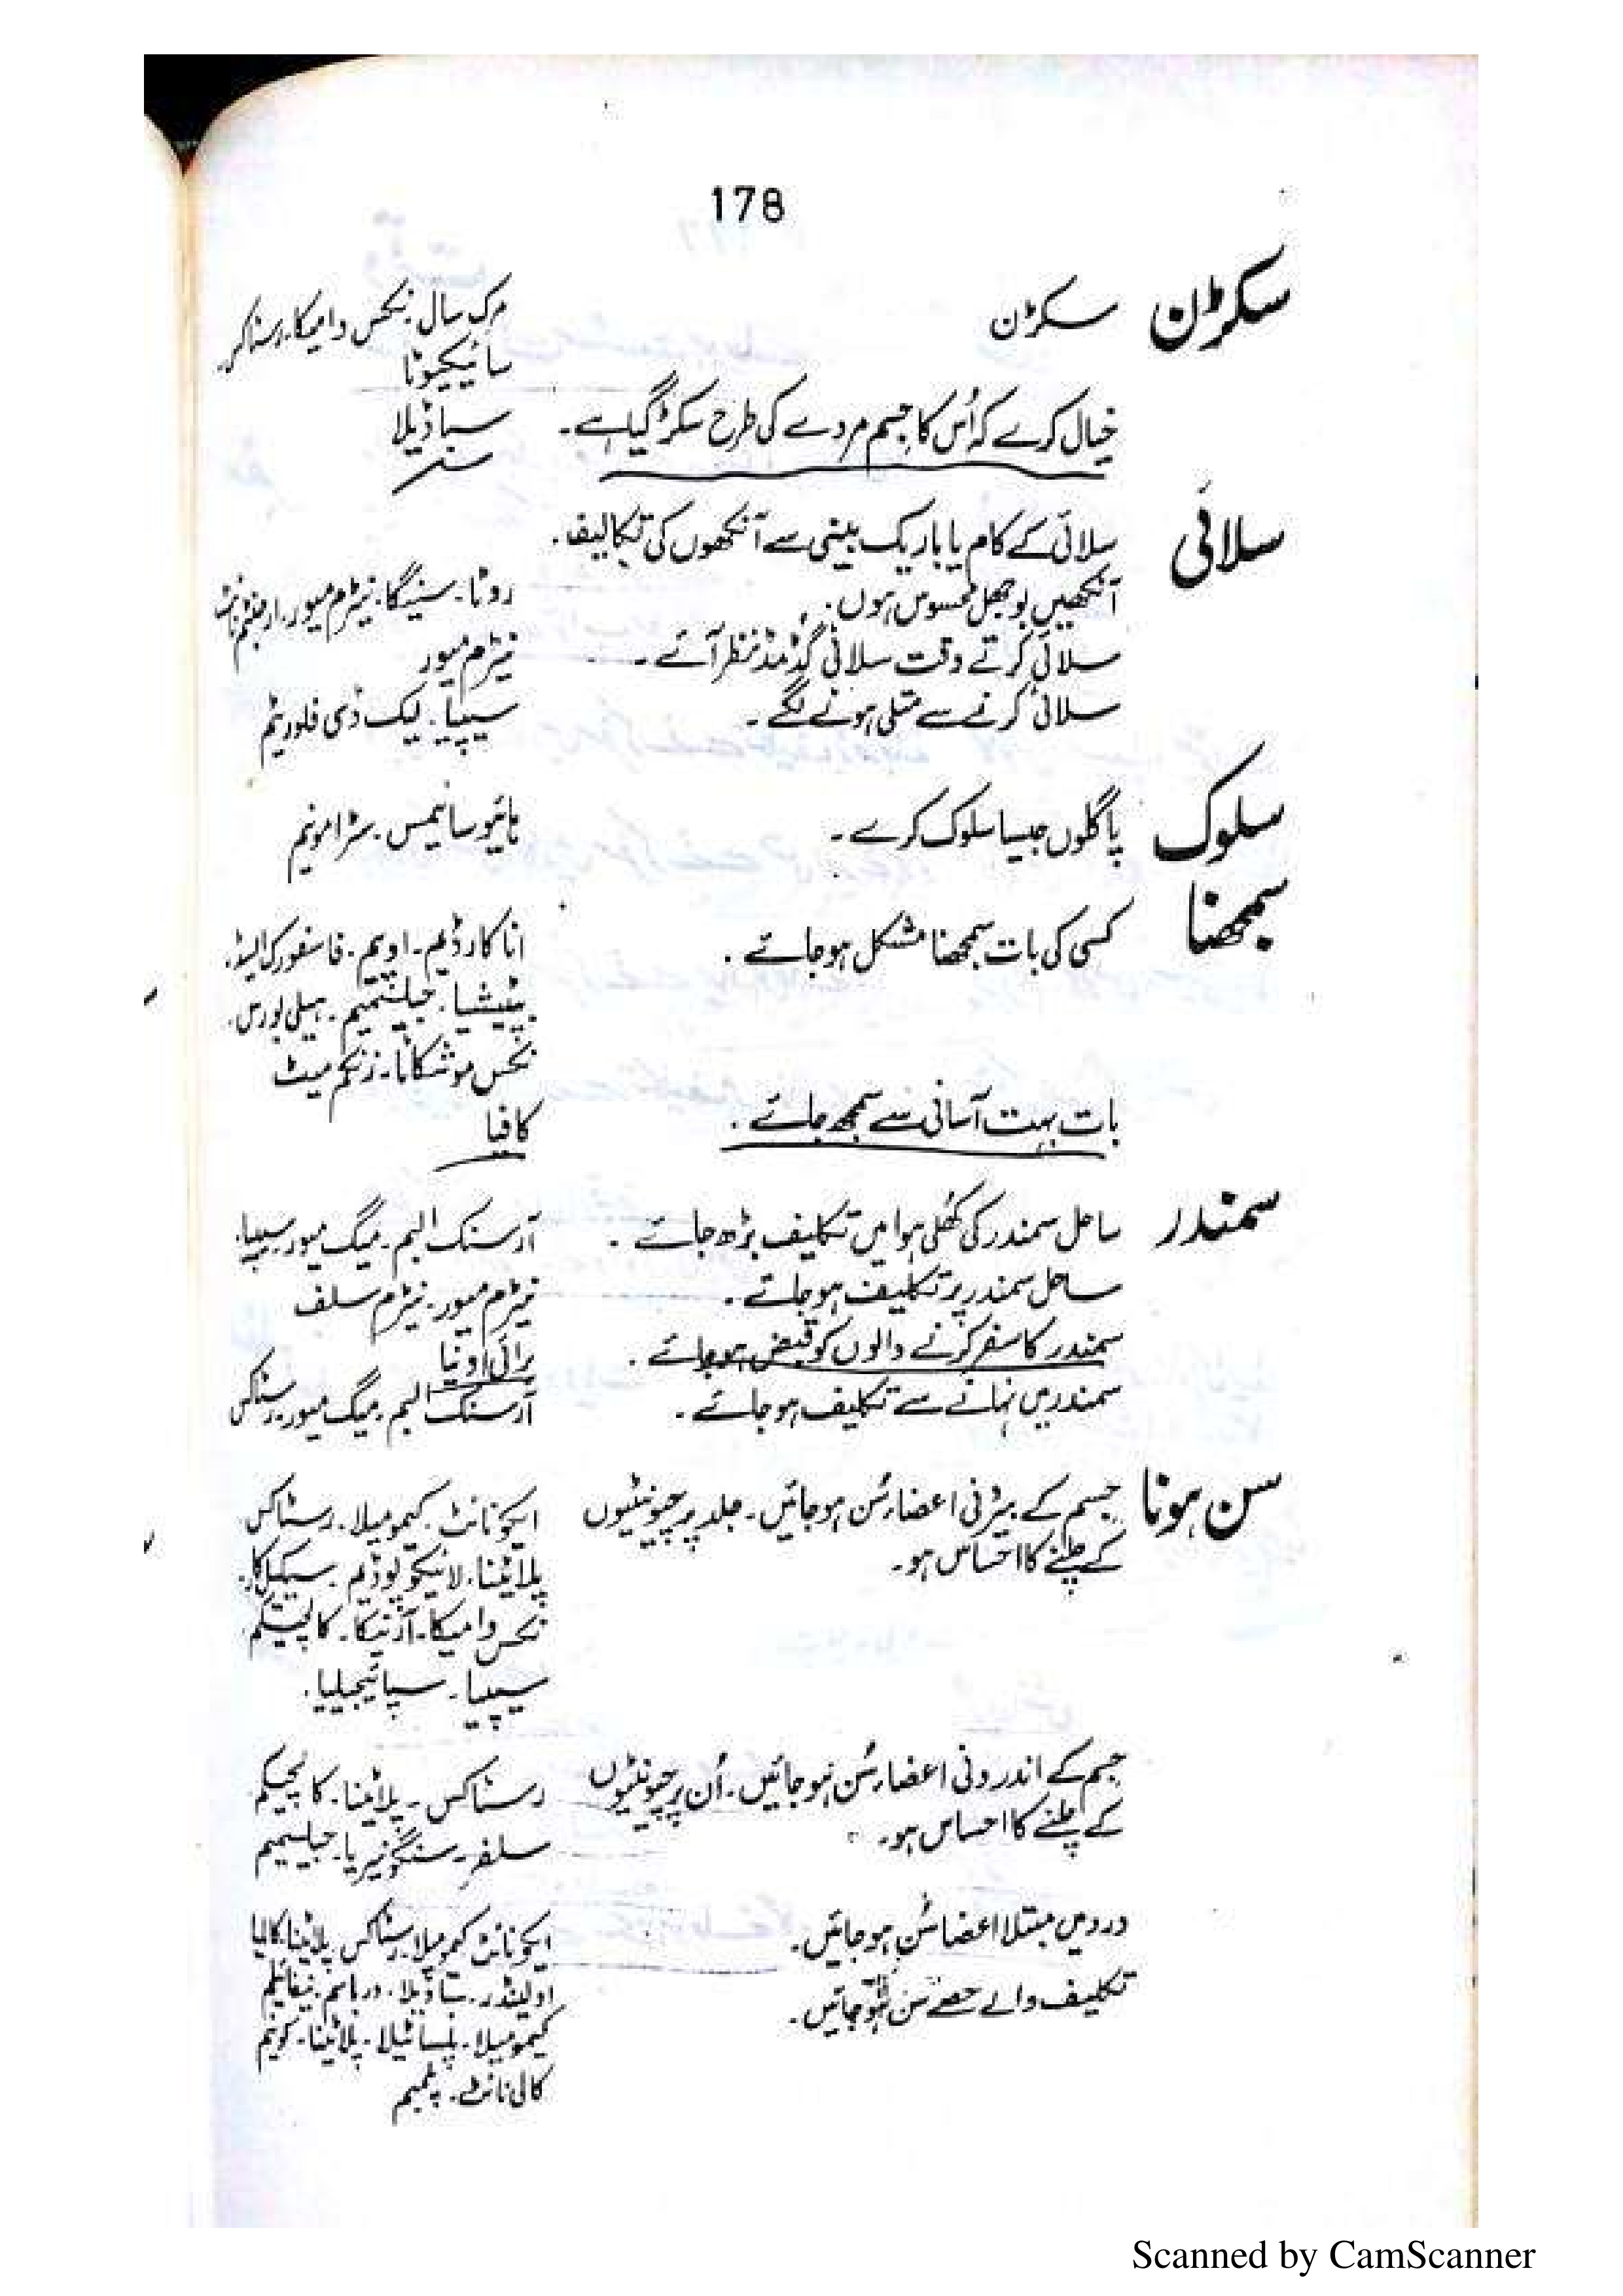 178
سکڑن سکڑن مرک سال۔ نکس وامیکا۔ رسٹاکس
سائیکیوٹا
خیال کرے کہ اُس کا جسم مردے کی طرح سکڑ گیا ہے۔ سباڈیلا
سلائی سلائی کے کام یا باریک بینی سے آنکھوں کی تکالیف۔
آنکھیں بوجھل محسوس ہوں۔ روٹا۔ سینیگا۔ نیٹرم میور۔ ارجنٹم نائٹ
سلائی کرتے وقت سلائی گڈمڈ نظر آئے۔ نیٹرم میور
سلائی کرنے سے متلی ہونے لگے۔ سیپیا۔ لیک ڈی فلوریٹم
سلوک پاگلوں جیسا سلوک کرے۔ ہائیوسائیمس۔ سٹرامونیم
سمجھنا کسی کی بات سمجھنا مشکل ہو جائے۔ اناکارڈیم۔ اوپیم۔ فاسفورک ایسڈ۔
بپٹیشیا۔ جیلسیمیم۔ ہیلی بورس۔
نکس موشکاٹا۔ زنکم میٹ
بات بہت آسانی سے سمجھ جائے۔ کافیا
سمندر ساحل سمندر کی کھُلی ہوا میں تکلیف بڑھ جائے۔ آرسنک البم۔ میگ میور۔ سیپیا۔
ساحل سمندر پر تکلیف ہو جائے۔ نیٹرم میور۔ نیٹرم سلف
سمندر کا سفر کرنے والوں کو قبض ہو جائے۔ برائی اونیا
سمندر میں نہانے سے تکلیف ہو جائے۔ آرسنک البم۔ میگ میور۔ رسٹاکس
سن ہونا جسم کے بیرونی اعضاء سُن ہو جائیں۔ جلد پر چیونٹیوں ایکونائٹ۔ کیمومیلا۔ رسٹاکس
کے چلنے کا احساس ہو۔ پلاٹینا۔ لائیکوپوڈیم۔ سیکیل کار۔
نکس وامیکا۔ آرنیکا۔ کاپسیکم
سیپیا۔ سپائیجیلیا۔
جسم کے اندرونی اعضاء سُن ہو جائیں۔ اُن پر چیونٹیوں رسٹاکس۔ پلاٹینا۔ کاپسیکم
کے چلنے کا احساس ہو۔ سلفر۔ سنگونیریا۔ جیلسیمیم
درد میں مبتلا اعضا سُن ہو جائیں۔ ایکونائٹ کیمومیلا۔ رسٹاکس پلاٹینا۔ کالمیا
اولینڈر۔ سباڈیلا۔ ورباسم۔ نیفالیم
تکلیف والے حصے سُن ہو جائیں۔ کیمومیلا۔ پلساٹیلا۔ پلاٹینا۔ کونیم
کالی نائٹ۔ پلمبم
Scanned by CamScanner